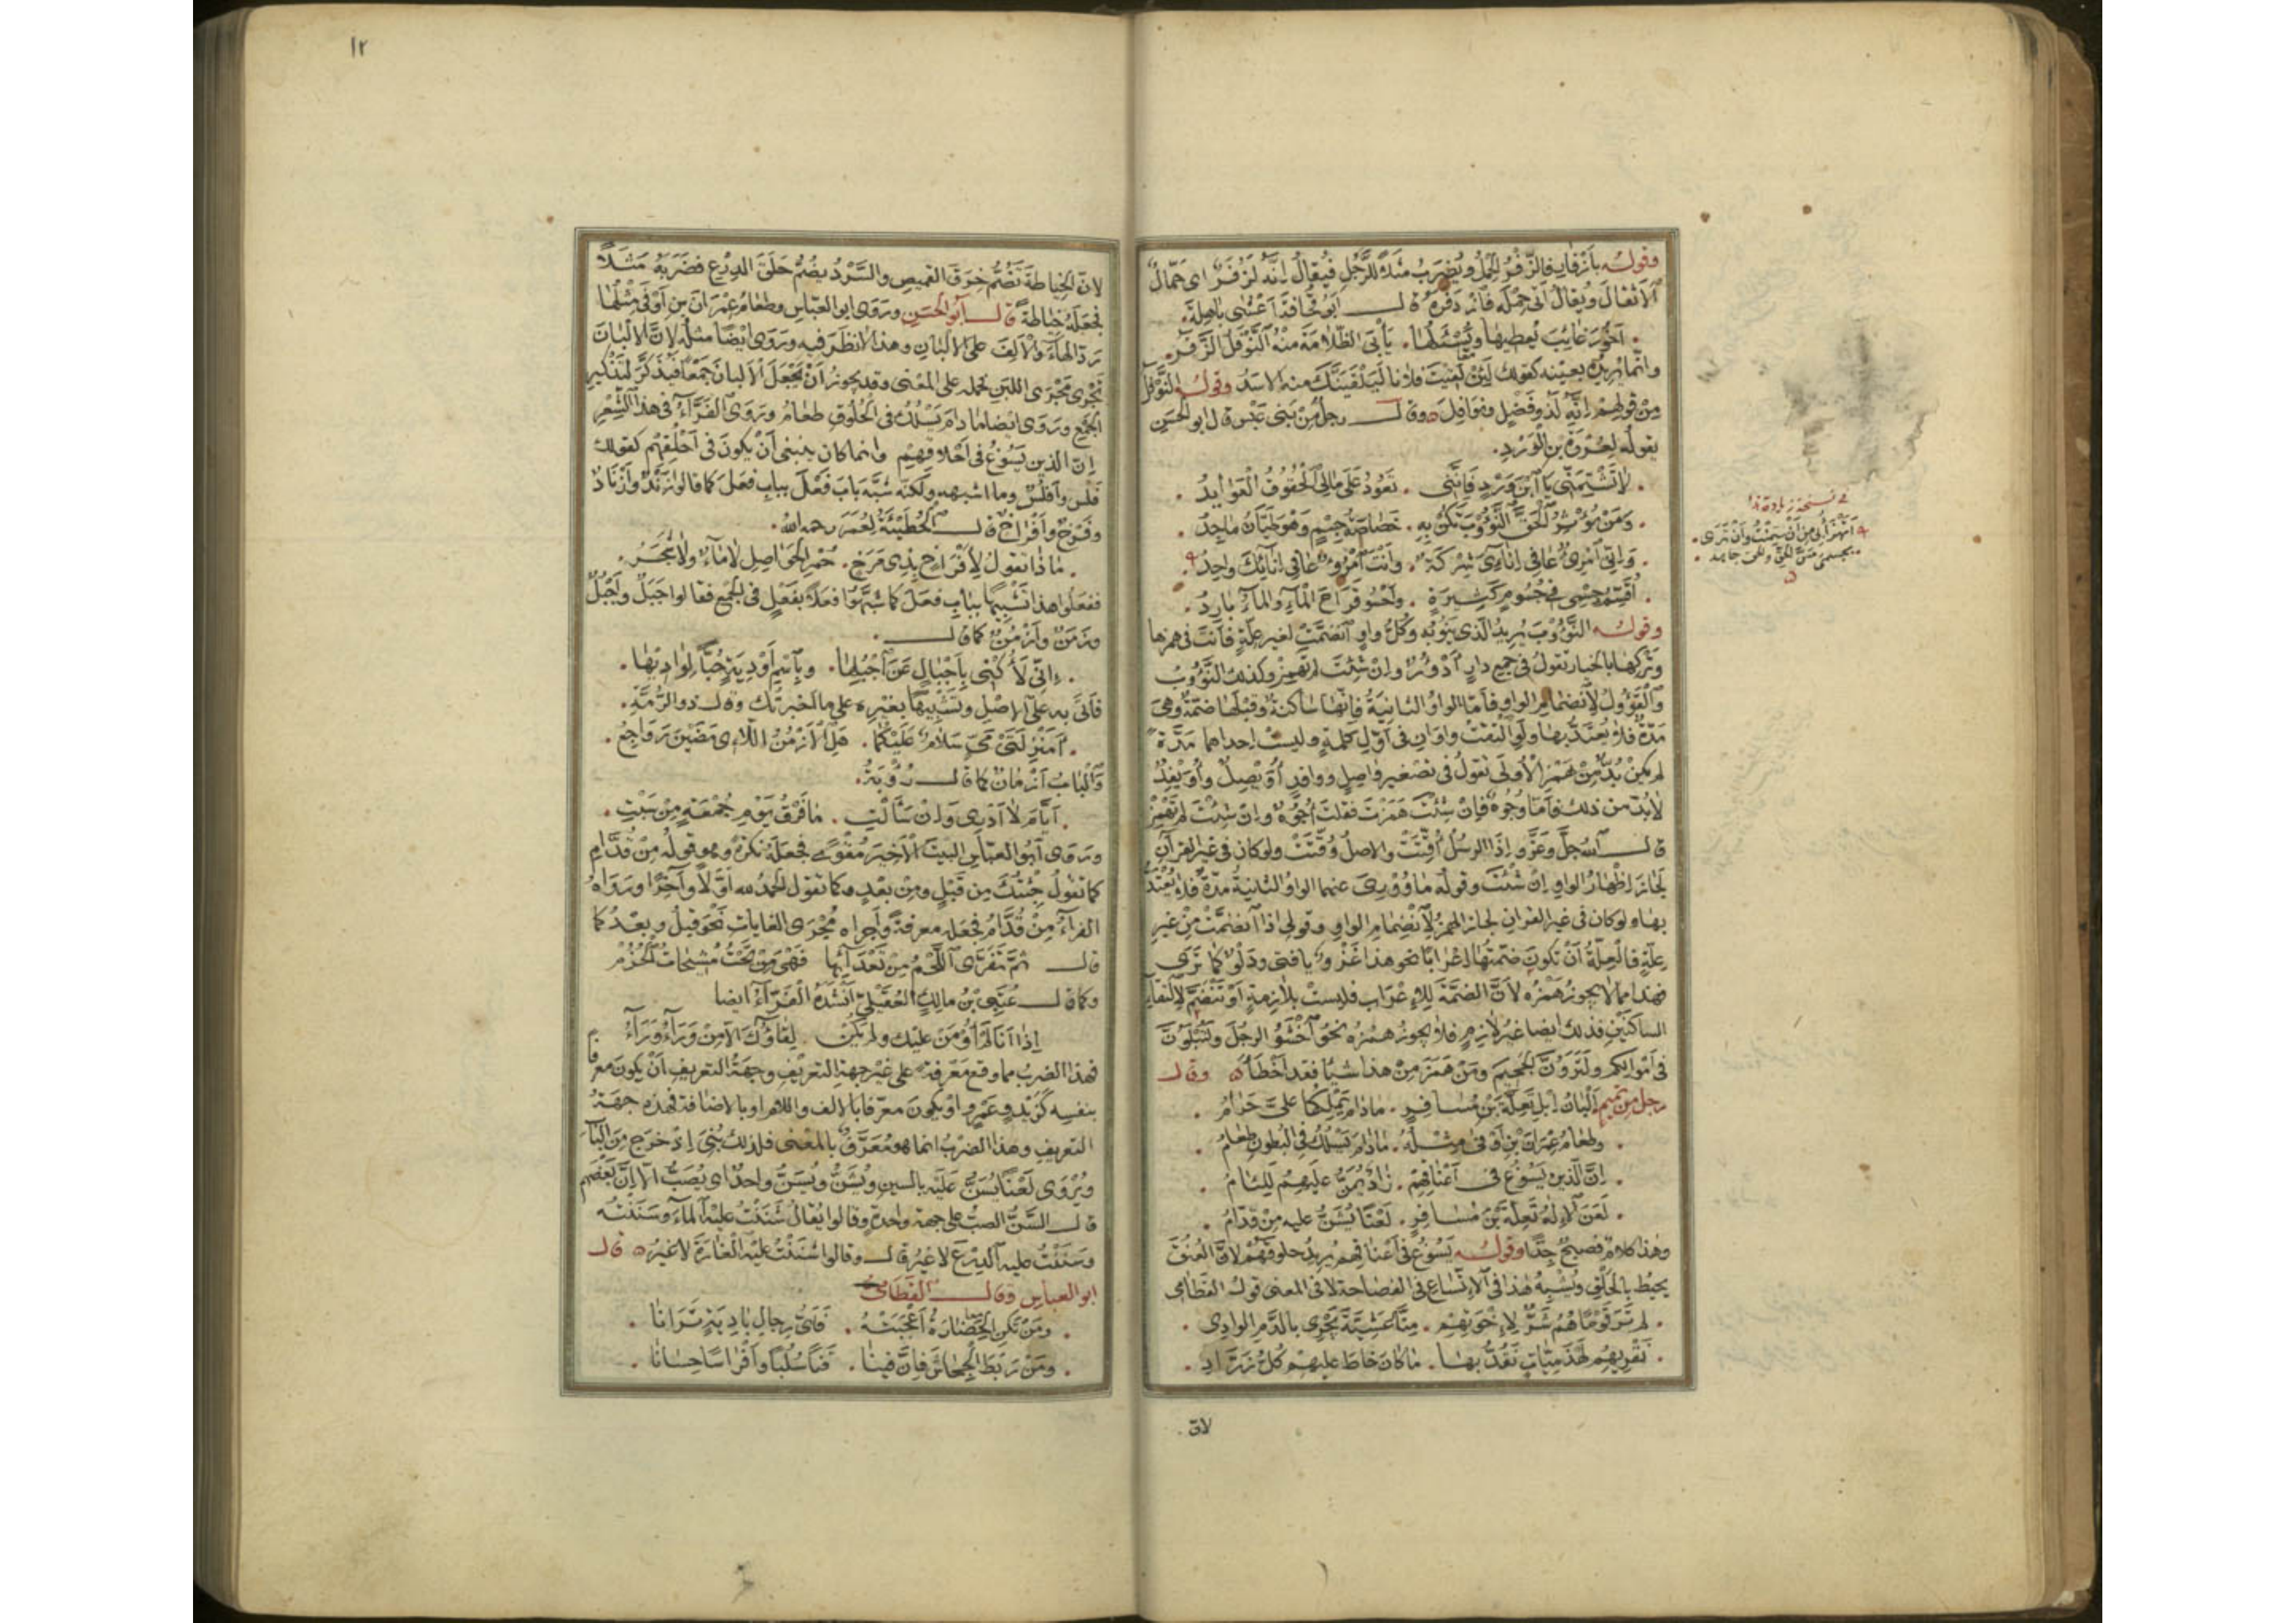 وقوله بأزفار فالزفر الحمل ويضرب مثلا للرجل فيقال إنه لزفر اى حمال
الاثقال ويقال اتى حمله فازدفره قال ابو قحافة أعشى باهلة
أخو رغائب يعطيها ويسئلها . يأبى الظلامة منه النوفل الزفر
وانما يريده بعينه كقولك لئن لقيت فلانا ليلقينك منه الاسد وقوله النوفل
من قولهم انه لذو فضل ونوافل ه وقال رجل من بنى عبس قال ابو الحسن
يقوله لعروة بن الورد.
لا تشتمنى يا ابن ورد فاننى . تعود على مالى الحقوق العوايد .
ومن يؤثر الحق النؤوب تكن به . خصاصة جسم وهو طيان ماجد .
وانى امرؤ عافى انائى شركة . وأنت امرؤ عافى انائك واحد .
أقسم جسمى فى جسوم كثيرة . واحسو قراح الماء والماء بارد .
وقوله النؤوب يريد الذى ينوبه وكل واو انضمت لغير علة فانت فى همزها
وتركها بالخيار تقول فى جمع دار أدؤر وان شئت لم تهمز وكذلك النؤوب
والقؤول لانضمام الواو فأما الواو الثانية فانها ساكنة وقبلها ضمة وهى
مدة فلا يعتد بها ولو التقت واوان فى أول كلمة وليست احداهما مدة
لم يكن بد من همز الأولى تقول فى تصغير واصل ووافد أويصل وأويفد
لا بد من ذلك فاما وجوه فإن شئت همزت فقلت أجوه وان شئت لم تهمز
قال الله جل وعز واذا الرسل أقتت والاصل وقتت ولو كان فى غير القرآن
لجاز اظهار الواو ان شئت وقوله ما وورى عنهما الواو الثانية مدة فلا يعتد
بها ولو كان فى غير القران لجاز الهمز لانضمام الواو وقولى اذا انضمت من غير
علة فالعلة أن تكون ضمتها اعرابا نحو هذا غزو يا فتى ودلو كما ترى
فهذا مما لا يجوز همزه لان الضمة للاعراب فليست بلازمة أو تنضم لالتقاء
الساكنين فذلك ايضا غير لازم فلا يجوز همزه نحو اخشو الرجل ولتبلون
فى أموالكم ولترون الجحيم ومن همز من هذا شيا فقد أخطأ ه وقال
رجل من تميم ألبان إبل تعلة بن مسافر . ما دام يملكها على حرام .
وطعام عمران بن أوفى مثله . ما دام يسلك فى البطون طعام .
ان الذين يسوغ فى أعناقهم . زاد يمن عليهم للئام .
لعن الاله تعلة بن مسافر . لعنا يشن عليه من قدام .
وهذا كلام فصيح جدا وقوله يسوغ فى أعناقهم يريد حلوقهم لان العنق
يحيط بالحلق ويشبه هذا فى الاتساع فى الفصاحة لا فى المعنى قول القطامى
لم تر قوما هم شر لاخوتهم . منا عشية يجرى بالدم الوادى .
نقريهم لهذميات نقد بها . ما كان خاط عليهم كل زراد .
لان
فى نسخة زيادة هذا
أتهزأ منى أن سمنت وأن ترى .
بجسمى مس الحق والحق جاهد .
١٢
لان الخياطة تضم خرق القميص والسرد يضم حلق الدرع فضربه مثلا
فجعله خياطة قال أبو الحسن وروى ابو العباس وطعام عمران بن أوفى مثلها
رد الهاء والألف على الالبان وهذا لا نظر فيه وروى ايضا مثله لان الالبان
تجرى مجرى اللبن فحمله على المعنى وقد يجوز أن تجعل الألبان جمعا فيذكر لتذكير
الجمع وروى ايضا ما دام يسلك فى الحلوق طعام وروى الفراء فى هذا الشعر
إن الذين يسوغ فى أحلاقهم وانما كان ينبغى أن يكون فى أحلقهم كقولك
فلس وأفلس وما اشبهه ولكنه شبه باب فعل بباب فعل كما قالوا زند وأزناد
وفرخ وأفراخ قال الحطيئة لعمر رحمه الله .
ماذا تقول لأفراخ بذى مرخ . حمر الحواصل لا ماء ولا شجر .
ففعلوا هذا تشبيها بباب فعل كما شبهوا فعلا بفعل فى الجمع فقالوا جبل وأجبل
وزمن وأزمن كما قال .
إنى لأكنى بأجبال عن أجبلها . وباسم أودية حبا لواديها .
فأتى به على الاصل وتشبيها بغيره على ما اخبرتك وقال ذو الرمة .
أمنزلتى مى سلام عليكما . هل الأزمن اللاءى مضين رواجع .
والباب أزمان كما قال رؤبة .
أيام لا أدرى وان سألت . ما فرق يوم جمعة من سبت .
وروى ابو العباس البيت الأخير مقوى فجعله نكرة وهو قوله من قدام
كما تقول جئتك من قبل ومن بعد وكما تقول الحمد لله أولا وآخرا ورواه
الفراء من قدام فجعله معرفة وأجراه مجرى الغايات نحو قبل وبعد كما
قال ثم تفرى اللحم من تعدائها فهى من تحت مشيحات الحزم
وكما قال عتى بن مالك العقيلى انشده الفراء ايضا
إذا انا لم أومن عليك ولم يكن . لقاؤك الا من وراء وراء
فهذا الضرب مما وقع معرفة على غير جهة التعريف وجهة التعريف أن يكون معرفا
بنفسه كزيد وعمرو او يكون معرفا بالالف واللام او بالاضافة فهذه جهة
التعريف وهذا الضرب انما هو معرف بالمعنى فلذلك بنى اذ خرج من الباب
ويروى لعنا يسن عليه بالسين ويشن ويسن واحد اى يصب الا ان بعضهم
قال السن الصب على جهة واحدة وقالوا يقال شننت عليه الماء وسننته
وسننت عليه الدرع لا غير قال وقالوا شننت عليه الغارة لا غير ه قال
ابو العباس وقال القطامى
ومن تكن الحضارة أعجبته . فأى رجال بادية ترانا .
ومن ربط الجحاش فإن فينا . قنا سلبا وأفراسا حسانا .